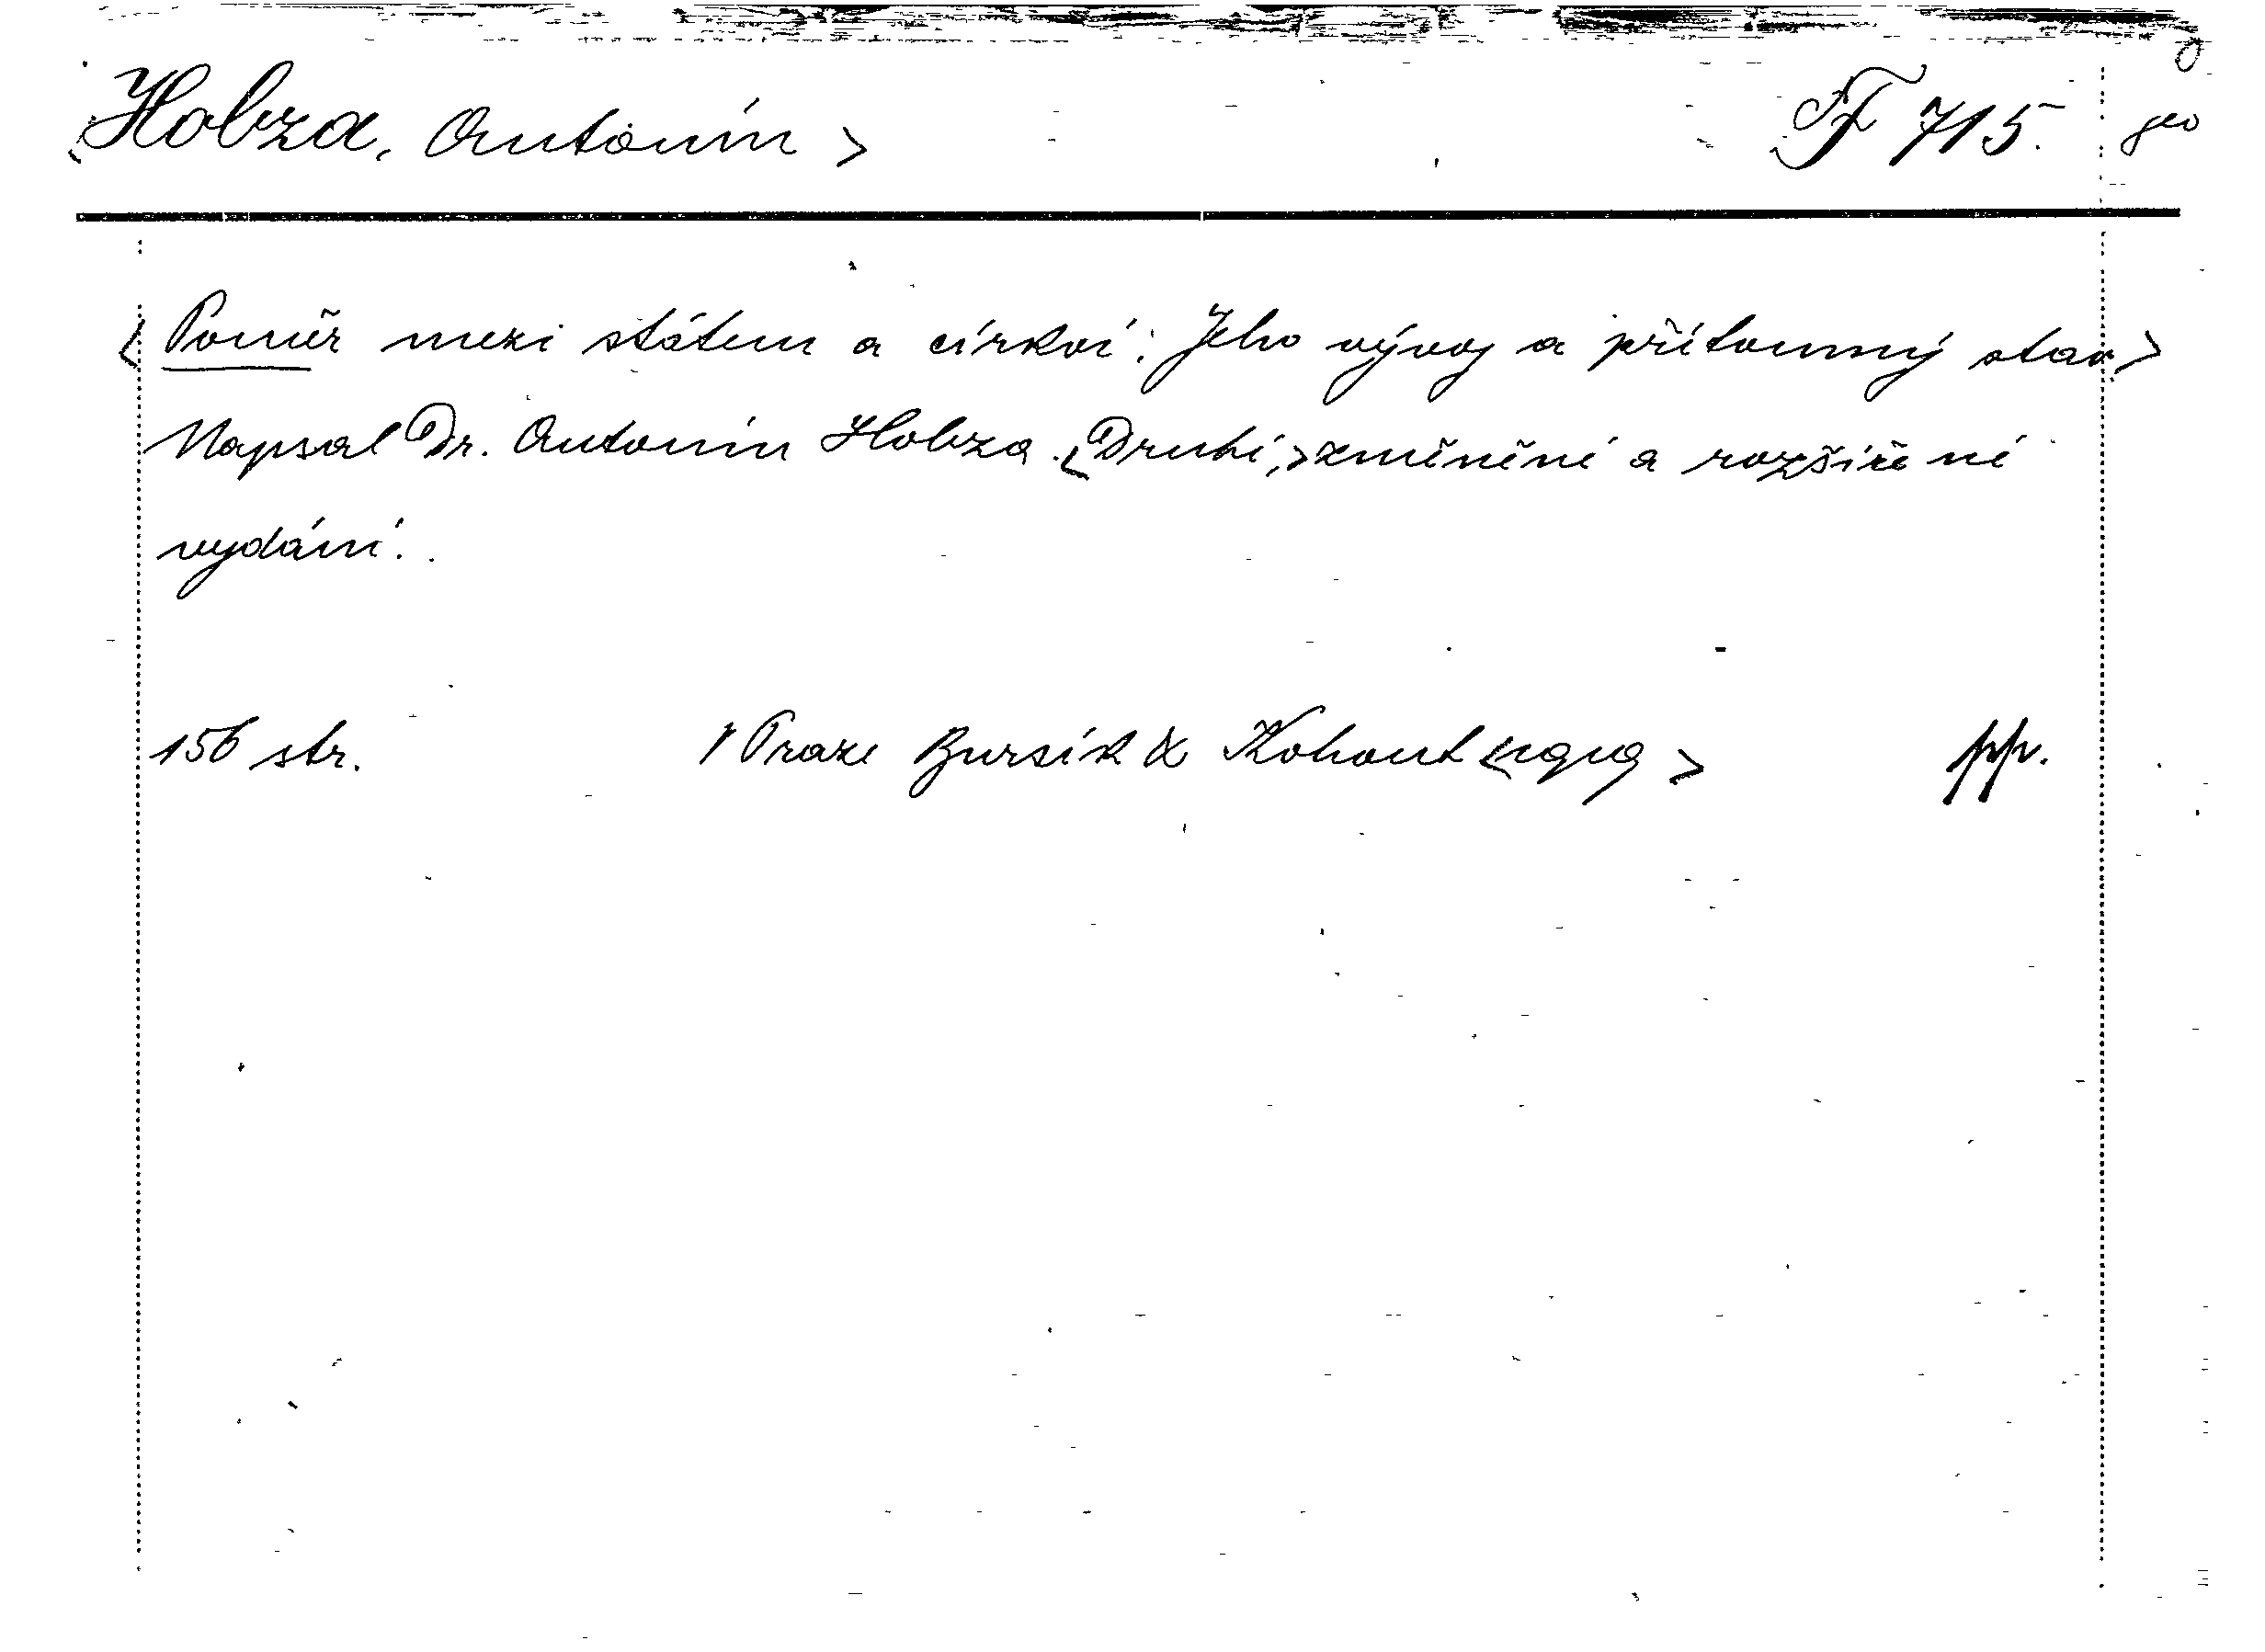 <Hobza, Antonín> F 715.
<Poměr mezi státem a církví: Jeho vývoj a přítomný stav.>
Napsal Dr. Antonín Hobza. <Druhé,> změněné a rozšířené
vydání.
156 str. V Praze Bursík & Kohout <1919> pp.